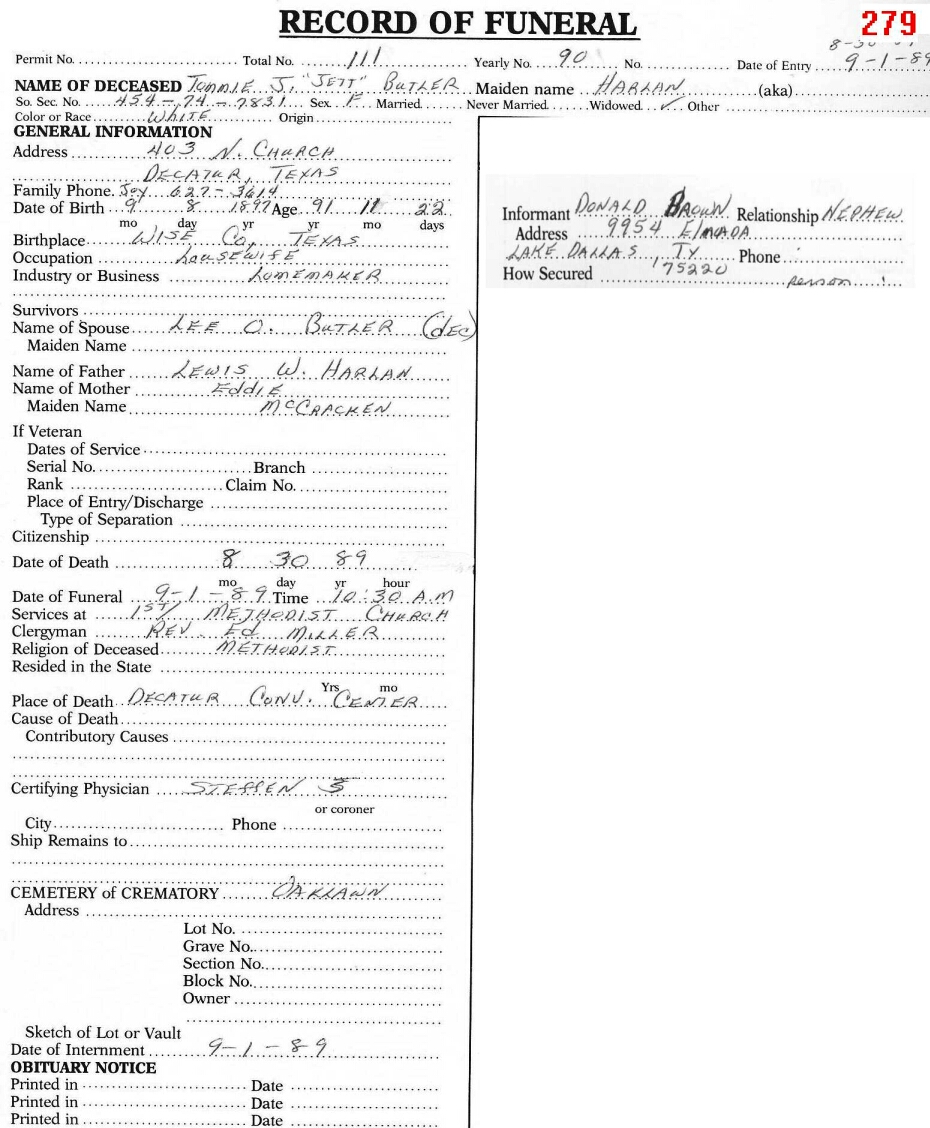 RECORD OF FUNERAL
279
Permit No. Total No. 111 Yearly No. 90 No. Date of Entry 9-1-89
NAME OF DECEASED Tommie J. "JETT" BUTLER Maiden name HARLAN (aka)
So. Sec. No. 454-74-7831 Sex F Married Never Married Widowed ✓ Other
Color or Race WHITE Origin
GENERAL INFORMATION
Address 403 N. CHURCH
DECATUR, TEXAS
Family Phone. Joy 627-3614
Date of Birth 9 8 1897 Age 91 11 22
mo day yr yr mo days
Birthplace WISE Co, TEXAS
Occupation HOUSEWIFE
Industry or Business HOMEMAKER
Survivors
Name of Spouse LEE O. BUTLER (dEC)
Maiden Name
Name of Father LEWIS W. HARLAN
Name of Mother EddIE
Maiden Name McCRACKEN
If Veteran
Dates of Service
Serial No. Branch
Rank Claim No.
Place of Entry/Discharge
Type of Separation
Citizenship
Date of Death 8 30 89
mo day yr hour
Date of Funeral 9-1-89 Time 10:30 A.M
Services at 1ST/ METHODIST CHURCH
Clergyman REV. Ed MILLER
Religion of Deceased METHODIST
Resided in the State
Yrs mo
Place of Death DECATUR CONV. CENTER
Cause of Death
Contributory Causes
Certifying Physician STEFFEN
or coroner
City Phone
Ship Remains to
CEMETERY of CREMATORY OAKLAWN
Address
Lot No.
Grave No.
Section No.
Block No.
Owner
Sketch of Lot or Vault
Date of Internment 9-1-89
OBITUARY NOTICE
Printed in Date
Printed in Date
Printed in Date
Informant DONALD BROWN Relationship NEPHEW
Address 9954 ElMADA
LAKE DALLAS, TX Phone
75220
How Secured person